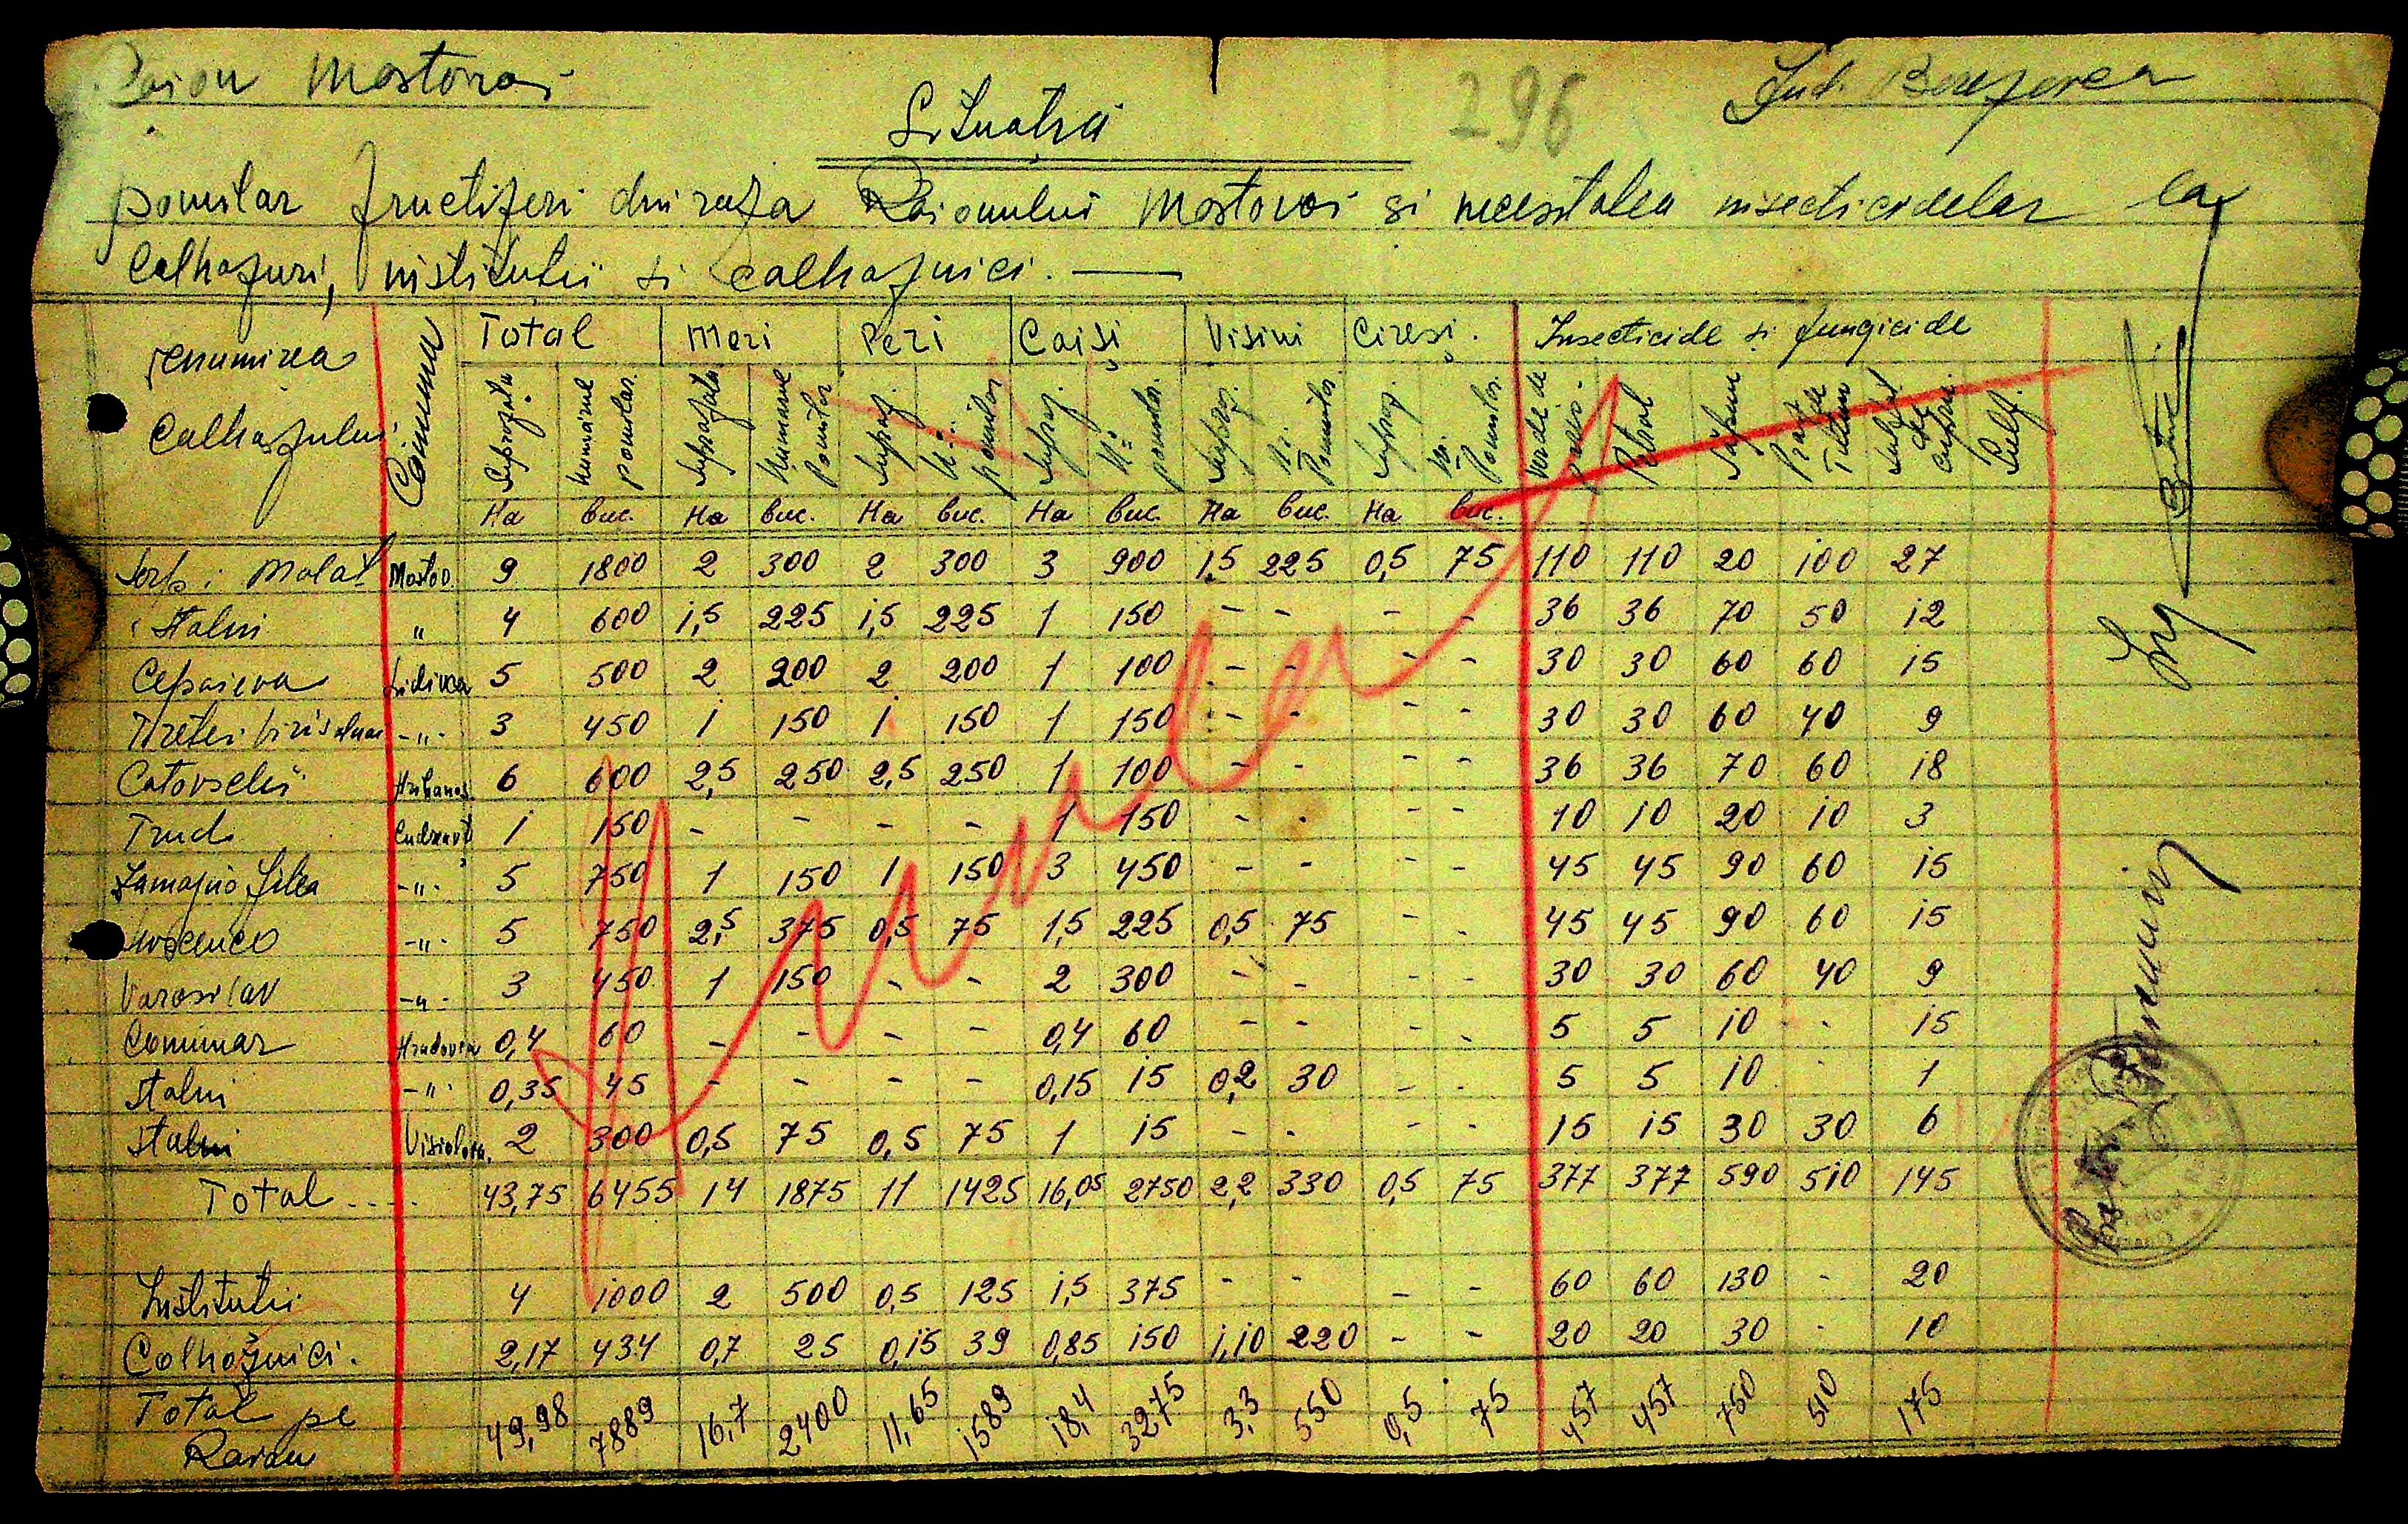 Raion Mostovoi
Jud. Berezovca
296
Situatia
pomilor fructiferi din raza Raionului Mostovoi si necesitatea insecticidelor la
Colhozuri, institutii si colhoznici. —
Denumirea Colhozului | Comuna | Total | Meri | Peri | Caisi | Visini | Ciresi. | Insecticide si fungicide
Suprafata | Numarul pomilor. | Suprafata | Numarul Pomilor | Supraf. | Nr. pomilor | Supraf. | Nr. pomilor. | Supraf. | Nr. Pomilor. | Supraf. | Nr. Pomilor. | Verde de paris. | Petrol | Sapun | Praf de Tutun | Sulfat de cupru. | Sulf.
Ha | buc. | Ha | buc. | Ha | buc. | Ha | buc. | Ha | buc. | Ha | buc.
Serp i Molat | Mostov. | 9 | 1800 | 2 | 300 | 2 | 300 | 3 | 900 | 1,5 | 225 | 0,5 | 75 | 110 | 110 | 20 | 100 | 27
Stalin | " | 4 | 600 | 1,5 | 225 | 1,5 | 225 | 1 | 150 | - | - | - | - | 36 | 36 | 70 | 50 | 12
Cepaieva | Lidivca | 5 | 500 | 2 | 200 | 2 | 200 | 1 | 100 | - | - | - | - | 30 | 30 | 60 | 60 | 15
Treter | -"- | 3 | 450 | 1 | 150 | 1 | 150 | 1 | 150 | - | - | - | - | 30 | 30 | 60 | 40 | 9
Catovschi | 6 | 600 | 2,5 | 250 | 2,5 | 250 | 1 | 100 | - | - | - | - | 36 | 36 | 70 | 60 | 18
Trud | 1 | 150 | - | - | - | - | 1 | 150 | - | - | - | - | 10 | 10 | 20 | 10 | 3
-"- | 5 | 750 | 1 | 150 | 1 | 150 | 3 | 450 | - | - | - | - | 45 | 45 | 90 | 60 | 15
-"- | 5 | 750 | 2,5 | 375 | 0,5 | 75 | 1,5 | 225 | 0,5 | 75 | - | - | 45 | 45 | 90 | 60 | 15
Varosilav | -"- | 3 | 450 | 1 | 150 | - | - | 2 | 300 | - | - | - | - | 30 | 30 | 60 | 40 | 9
Cominar | Hradovca | 0,4 | 60 | - | - | - | - | 0,4 | 60 | - | - | - | - | 5 | 5 | 10 | - | 15
Stalin | -"- | 0,35 | 45 | - | - | - | - | 0,15 | 15 | 0,2 | 30 | - | - | 5 | 5 | 10 | - | 1
Stalin | 2 | 300 | 0,5 | 75 | 0,5 | 75 | 1 | 15 | - | - | - | - | 15 | 15 | 30 | 30 | 6
Total .... | 43,75 | 6455 | 14 | 1875 | 11 | 1425 | 16,05 | 2750 | 2,2 | 330 | 0,5 | 75 | 377 | 377 | 590 | 510 | 145
Institutii | 4 | 1000 | 2 | 500 | 0,5 | 125 | 1,5 | 375 | - | - | - | - | 60 | 60 | 130 | - | 20
Colhoznici. | 2,17 | 434 | 0,7 | 25 | 0,15 | 39 | 0,85 | 150 | 1,10 | 220 | - | - | 20 | 20 | 30 | - | 10
Total pe Raion | 49,98 | 7889 | 16,7 | 2400 | 11,65 | 1589 | 18,4 | 3275 | 3,3 | 550 | 0,5 | 75 | 457 | 457 | 750 | 510 | 175
Ing